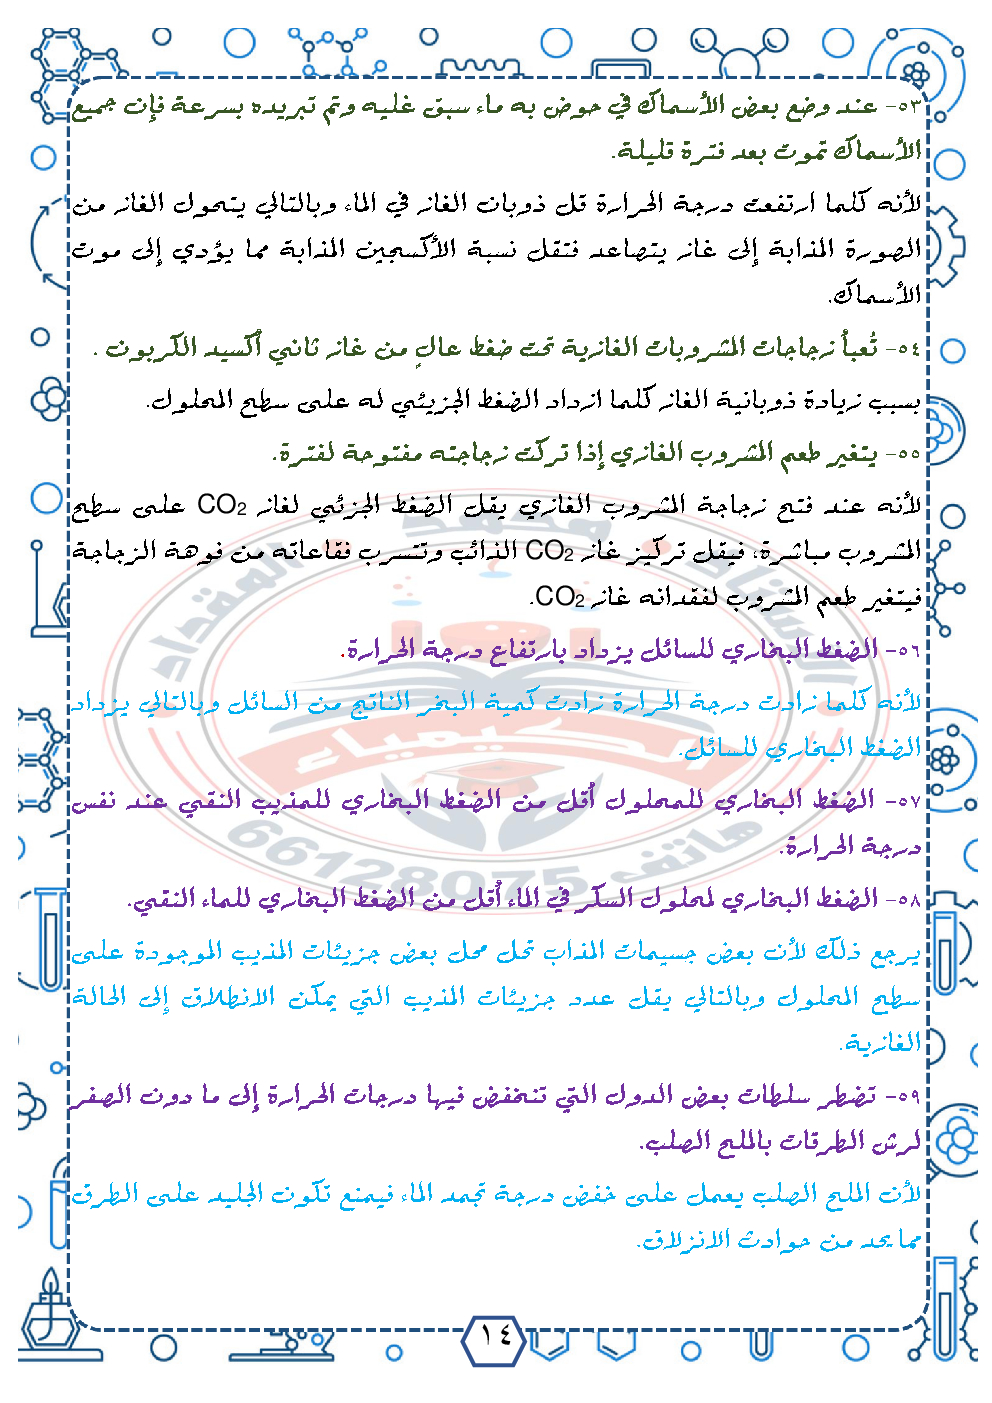 ٥٣- عند وضع بعض الأسماك في حوض به ماء سبق غليه وتم تبريده بسرعة فإن جميع
الأسماك تموت بعد فترة قليلة.
لأنه كلما ارتفعت درجة الحرارة قل ذوبان الغاز في الماء وبالتالي يتحول الغاز من
الصورة المذابة إلى غاز يتصاعد فتقل نسبة الأكسجين المذابة مما يؤدي إلى موت
الأسماك.
٥٤- تُعبأ زجاجات المشروبات الغازية تحت ضغط عالٍ من غاز ثاني أكسيد الكربون .
بسبب زيادة ذوبانية الغاز كلما ازداد الضغط الجزيئي له على سطح المحلول.
٥٥- يتغير طعم المشروب الغازي إذا تركت زجاجته مفتوحة لفترة.
لأنه عند فتح زجاجة المشروب الغازي يقل الضغط الجزئي لغاز CO2 على سطح
المشروب مباشرة، فيقل تركيز غاز CO2 الذائب وتتسرب فقاعاته من فوهة الزجاجة
فيتغير طعم المشروب لفقدانه غاز CO2.
٥٦- الضغط البخاري للسائل يزداد بارتفاع درجة الحرارة.
لأنه كلما زادت درجة الحرارة زادت كمية البخر الناتج من السائل وبالتالي يزداد
الضغط البخاري للسائل.
٥٧- الضغط البخاري للمحلول أقل من الضغط البخاري للمذيب النقي عند نفس
درجة الحرارة.
٥٨- الضغط البخاري لمحلول السكر في الماء أقل من الضغط البخاري للماء النقي.
يرجع ذلك لأن بعض جسيمات المذاب تحل محل بعض جزيئات المذيب الموجودة على
سطح المحلول وبالتالي يقل عدد جزيئات المذيب التي يمكن الانطلاق إلى الحالة
الغازية.
٥٩- تضطر سلطات بعض الدول التي تنخفض فيها درجات الحرارة إلى ما دون الصفر
لرش الطرقات بالملح الصلب.
لأن الملح الصلب يعمل على خفض درجة تجمد الماء فيمنع تكون الجليد على الطرق
مما يحد من حوادث الانزلاق.
١٤
الأستاذ محمد المقداد
الكيمياء
هاتف 66128075